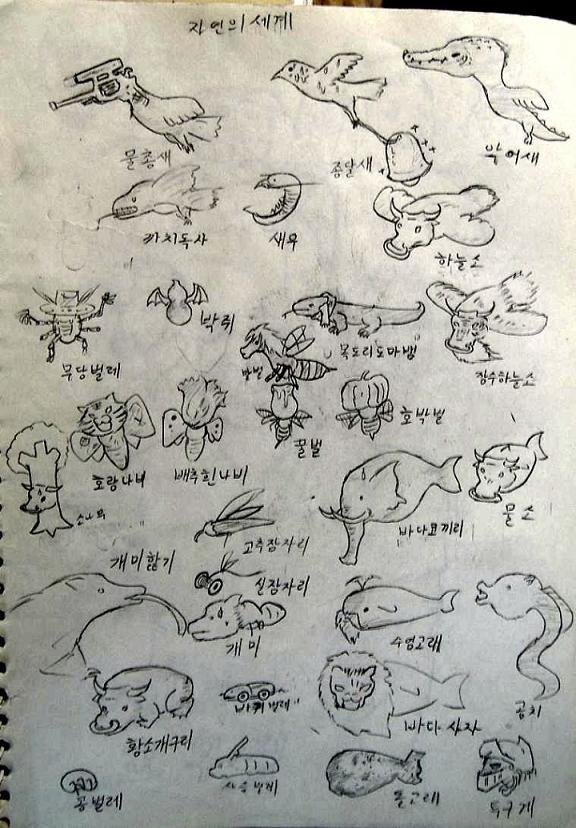 자연의 세계
물총새
종달새
악어새
까치독사
새우
하늘소
무당벌레
박쥐
목도리도마뱀
말벌
장수하늘소
호랑나비
배추흰나비
꿀벌
호박벌
소나무
고추잠자리
바다코끼리
물소
개미핥기
실잠자리
개미
수염고래
곰치
황소개구리
바퀴벌레
바다사자
콩벌레
사슴벌레
돌고래
투구게